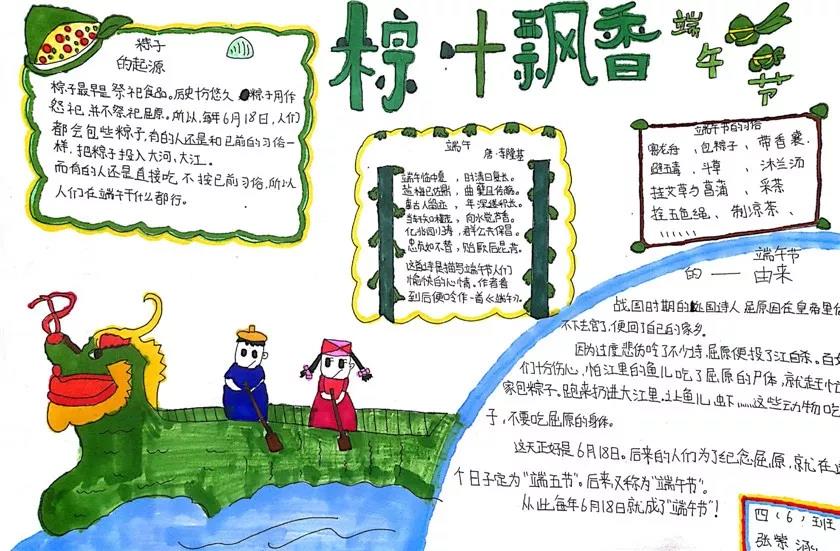 粽叶飘香
端午节
粽子
的起源
粽子最早是祭祀食品。历史十分悠久 粽子用作
祭祀,并不祭祀屈原。所以,每年6月18日,人们
都会包些粽子,有的人还是和已前的习俗一
样,把粽子投入大河,大江。
而有的人还是直接吃,不按已前习俗,所以
人们在端午干什么都行。
端午
唐·李隆基
端午临中夏,时清日复长。
盐梅已佐鼎,曲糵且传觞。
事古人留迹,年深缕积长。
当轩知槿茂,向水觉芦香。
亿兆同归寿,群公共保昌。
忠贞如不替,贻厥后昆芳。
这首诗是描写端午节人们
愉快的心情。作者看
到后便吟作一首《端午》。
端午节的习俗
赛龙舟、包粽子、带香囊、
避五毒、斗草、沐兰汤
挂艾草与菖蒲、采茶
拴五色绳、制凉茶、
端午节
的——由来
战国时期的 国诗人屈原因在皇帝里
不下去官了,便回了自己的家乡。
因为过度悲伤吟了不少诗,屈原便投了江自杀。百
们十分伤心,怕江里的鱼儿吃了屈原的尸体,就赶忙
家包粽子。跑来扔进大江里,让鱼儿,虾……这些动物吃
子,不要吃屈原的身体。
这天正好是6月18日。后来的人们为了纪念屈原,就在这
个日子定为“端五节”。后来又称为“端午节”。
从此,每年6月18日就成了“端午节”!
四(6)班
张紫涵